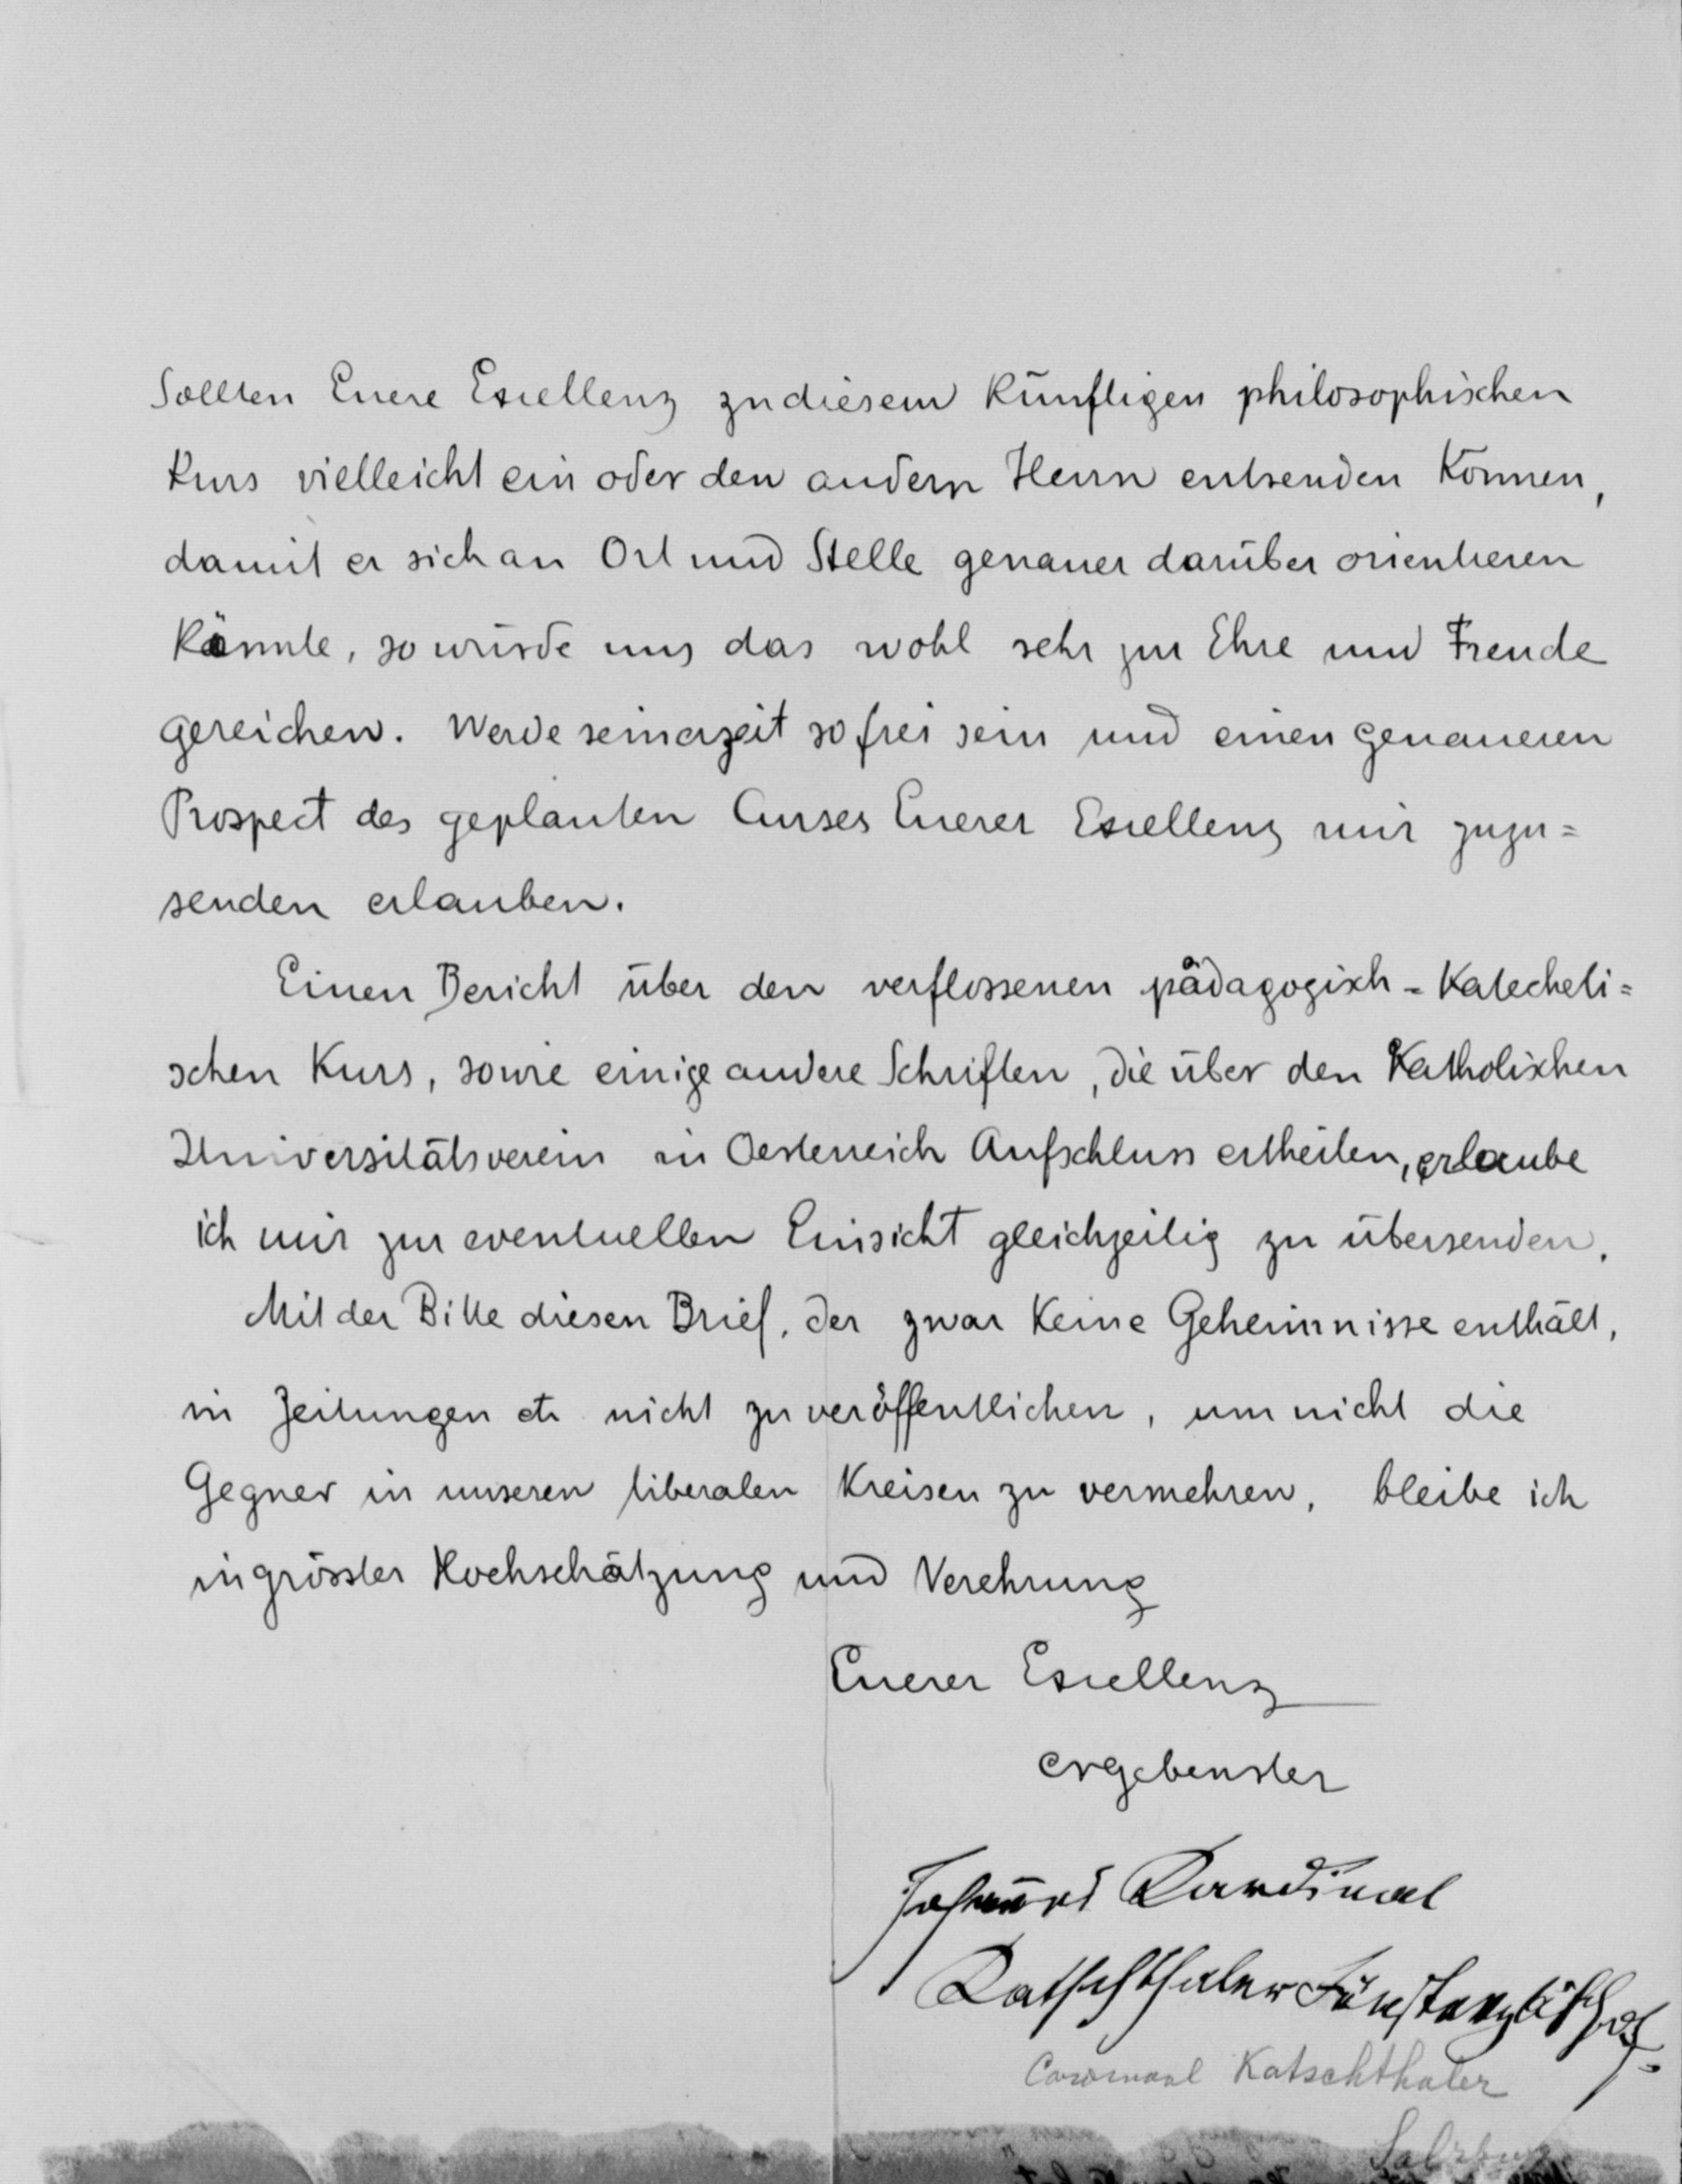 Sollten Euere Excellenz zu diesem künftigen philosophischen
Kurs vielleicht ein oder den andern Herrn entsenden können,
damit er sich an Ort und Stelle genauer darüber orientieren
könnte, so würde uns das wohl sehr zur Ehre und Freude
gereichen. Werde seinerzeit so frei sein und einen genaueren
Prospect des geplanten Curses Euerer Excellenz mir zuzu=
senden erlauben.
Einen Bericht über den verflossenen pädagogisch-kathecheti=
schen Kurs, sowie einige andere Schriften, die über den katholischen
Universitätsverein in Oesterreich Aufschluss ertheilen, erlaube
ich mir zur eventuellen Einsicht gleichzeitig zu übersenden.
Mit der Bitte diesen Brief, der zwar keine Geheimnisse enthält,
in Zeitungen etc nicht zu veröffentlichen, um nicht die
Gegner in unseren liberalen Kreisen zu vermehren, bleibe ich
in grösster Hochschätzung und Verehrung
Euerer Excellenz
ergebenster
Johannes Kardinal
Katschthaler Fürsterzbischof
Cardinaal Katschthaler
Salzburg